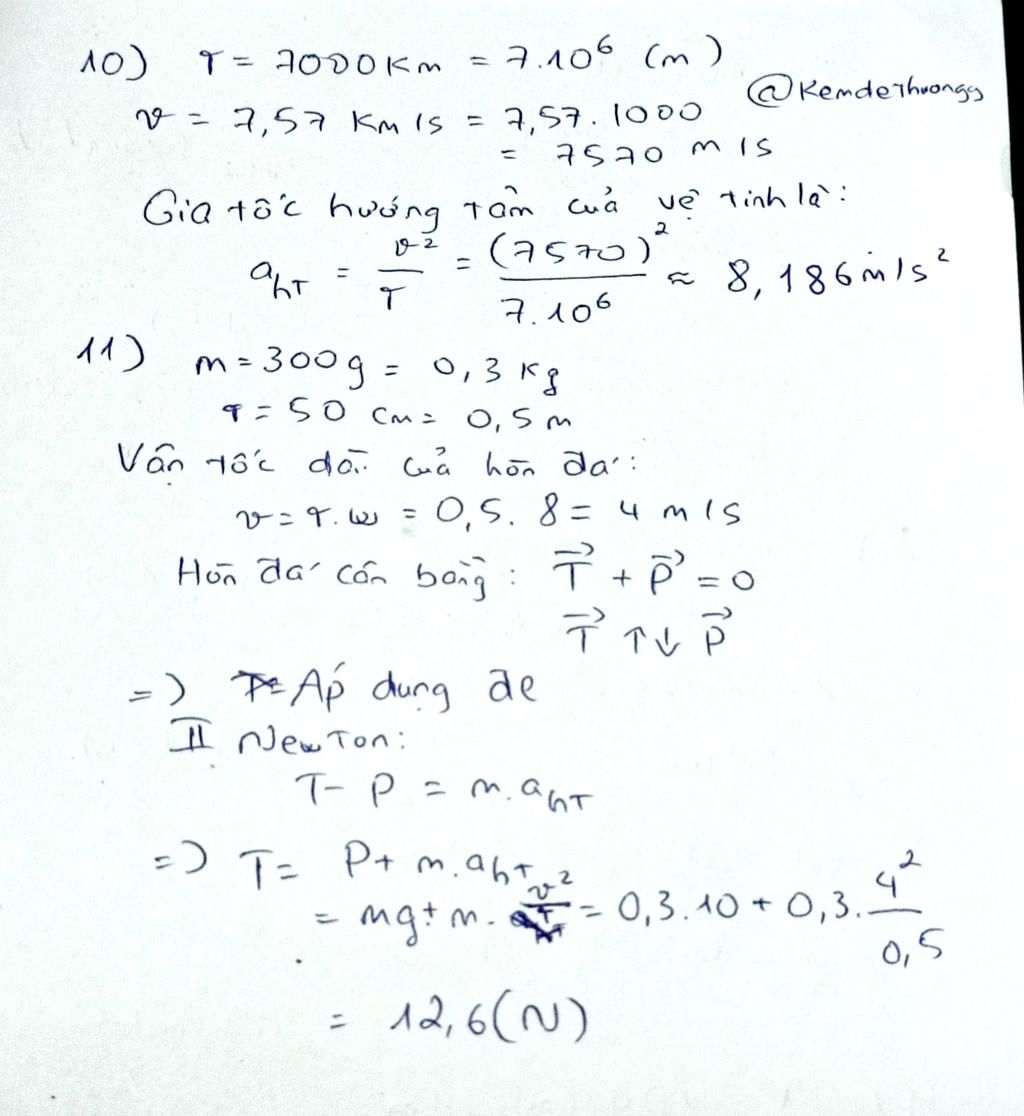 10) r = 7000 Km = 7.10⁶ (m)
@Kemdethuongg
v = 7,57 Km/s = 7,57.1000
= 7570 m/s
Gia tốc hướng tâm của vệ tinh là:
a_hT = v²/r = (7570)²/7.10⁶ ≈ 8,186 m/s²
11) m = 300g = 0,3 kg
r = 50 cm = 0,5 m
Vận tốc dài của hòn đá:
v = r.ω = 0,5. 8 = 4 m/s
Hòn đá cân bằng: T⃗ + P⃗ = 0
T⃗ ↑↓ P⃗
=) Áp dụng đl
II NewTon:
T - P = m.a_hT
=) T = P + m.a_ht
= mg + m. v²/r = 0,3.10 + 0,3. 4²/0,5
= 12,6 (N)